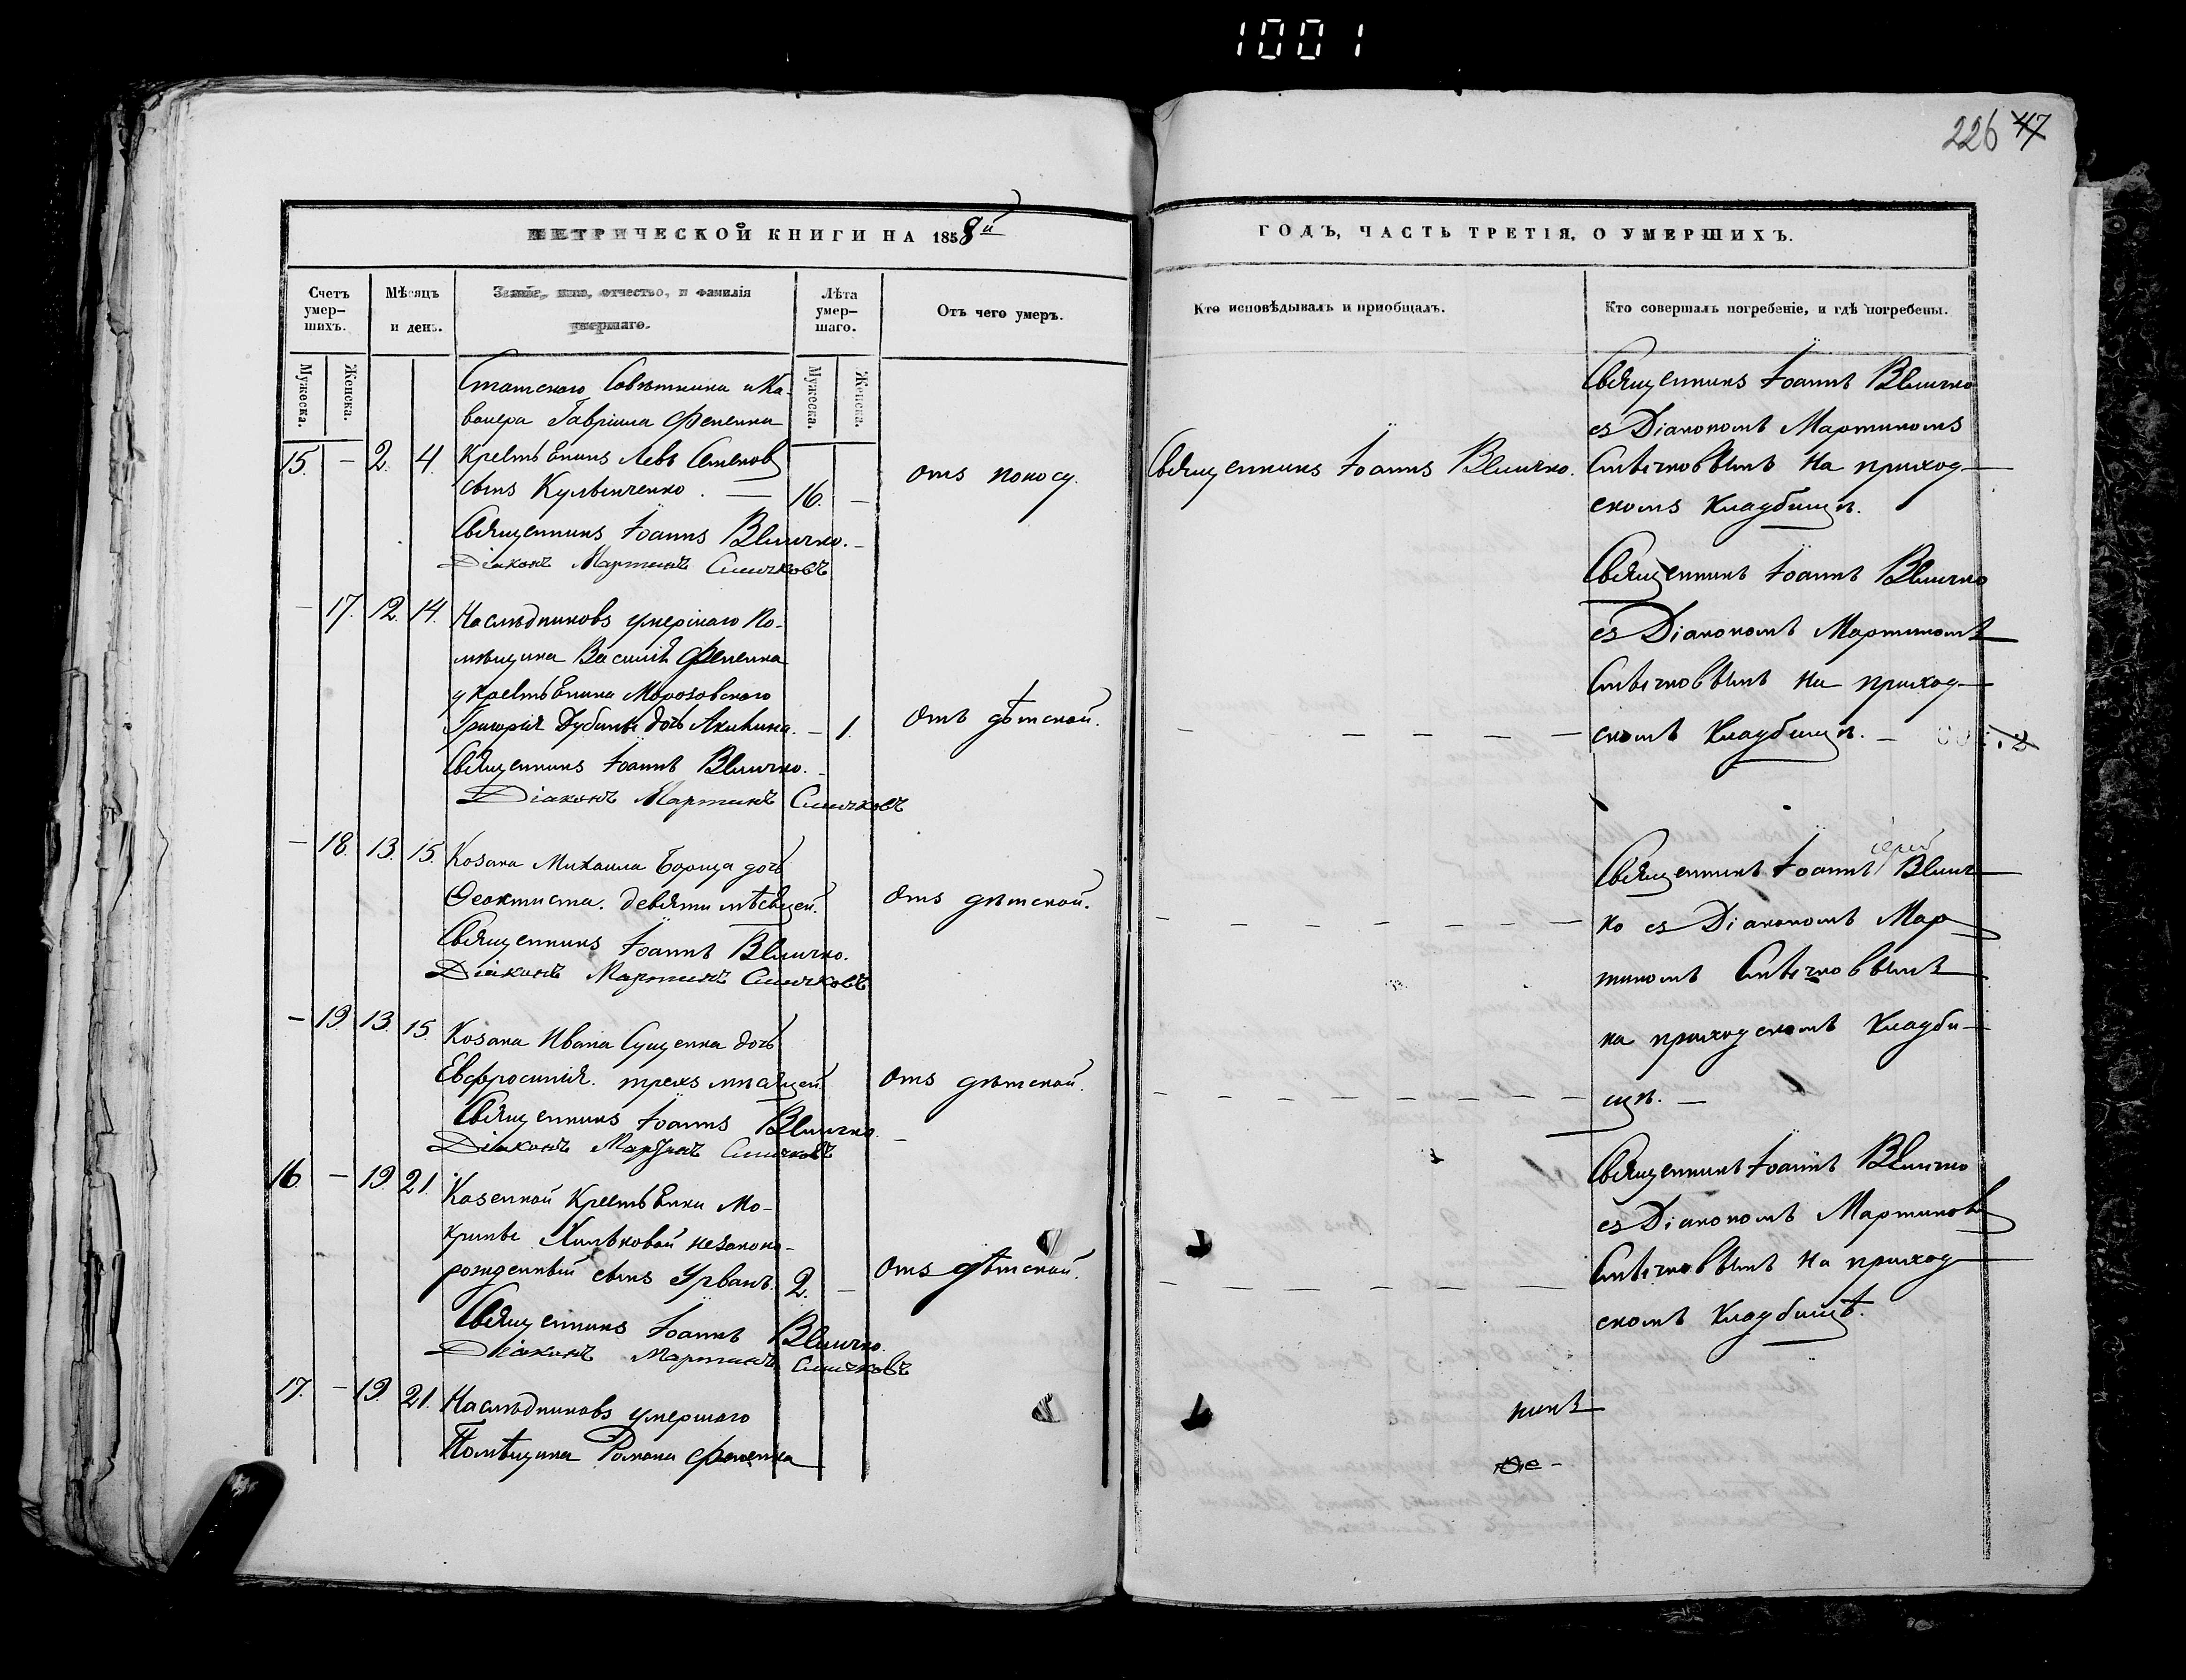 1001
226 47
МЕТРИЧЕСКОЙ КНИГИ НА 1858й
Счетъ умер–шихъ.
Мѣсяцъ и день.
Званіе, имя, отчество, и фамилія умершаго.
Лѣта умер–шаго.
Отъ чего умеръ.
Мужеска.
Женска.
Мужеска.
Женска.
Статскаго Совѣтника и Ка-
валера Гавріила Фененка
15. — 2. 4. Крестьянинъ Левъ Семеновъ
сынъ — 16. — отъ поносу.
Священникъ Іоаннъ Величко.
Діаконъ Мартинъ
— 17. 12. 14. Наслѣдниковъ умершаго По-
мѣщика Василія Фененка
у крестьянина Морозовского
Григорія Дубины дочь Акилина. — 1. Отъ дѣтской.
Священникъ Іоаннъ Величко.
Діаконъ Мартинъ
— 18. 13. 15. Козака Михаила Борща дочь
Феоктиста. девяти мѣсяцей. Отъ дѣтской.
Священникъ Іоаннъ Величко.
Діаконъ Мартинъ
— 19. 13. 15. Козака Ивана Сущенка дочь
Евфросинія. трехъ мѣсяцей. Отъ дѣтской.
Священникъ Іоаннъ Величко.
Діаконъ Мартинъ
16. — 19. 21. Казенной Крестьянки Мо-
крины Хильковой незаконо-
рожденный сынъ Урванъ. 2. — Отъ дѣтской.
Священникъ Іоаннъ Величко.
Діаконъ Мартинъ
17. — 19. 21. Наслѣдниковъ умершаго
Помѣщика Романа Фененка
ГОДЪ, ЧАСТЬ ТРЕТІЯ, О УМЕРШИХЪ.
Кто исповѣдывалъ и пріобщалъ.
Кто совершалъ погребеніе, и гдѣ погребены.
Священникъ Іоаннъ Величко.
Священникъ Іоаннъ Величко
съ Діакономъ Мартиномъ
на приход-
скомъ кладбищѣ.
Священникъ Іоаннъ Величко
съ Діакономъ Мартиномъ
на приход-
скомъ кладбищѣ. —
Священникъ Іоаннъ Велич-
ко съ Діакономъ Мар-
тиномъ
на приходскомъ кладби-
щѣ. —
Священникъ Іоаннъ Величко
съ Діакономъ Мартиномъ
на приход-
скомъ кладбищѣ.